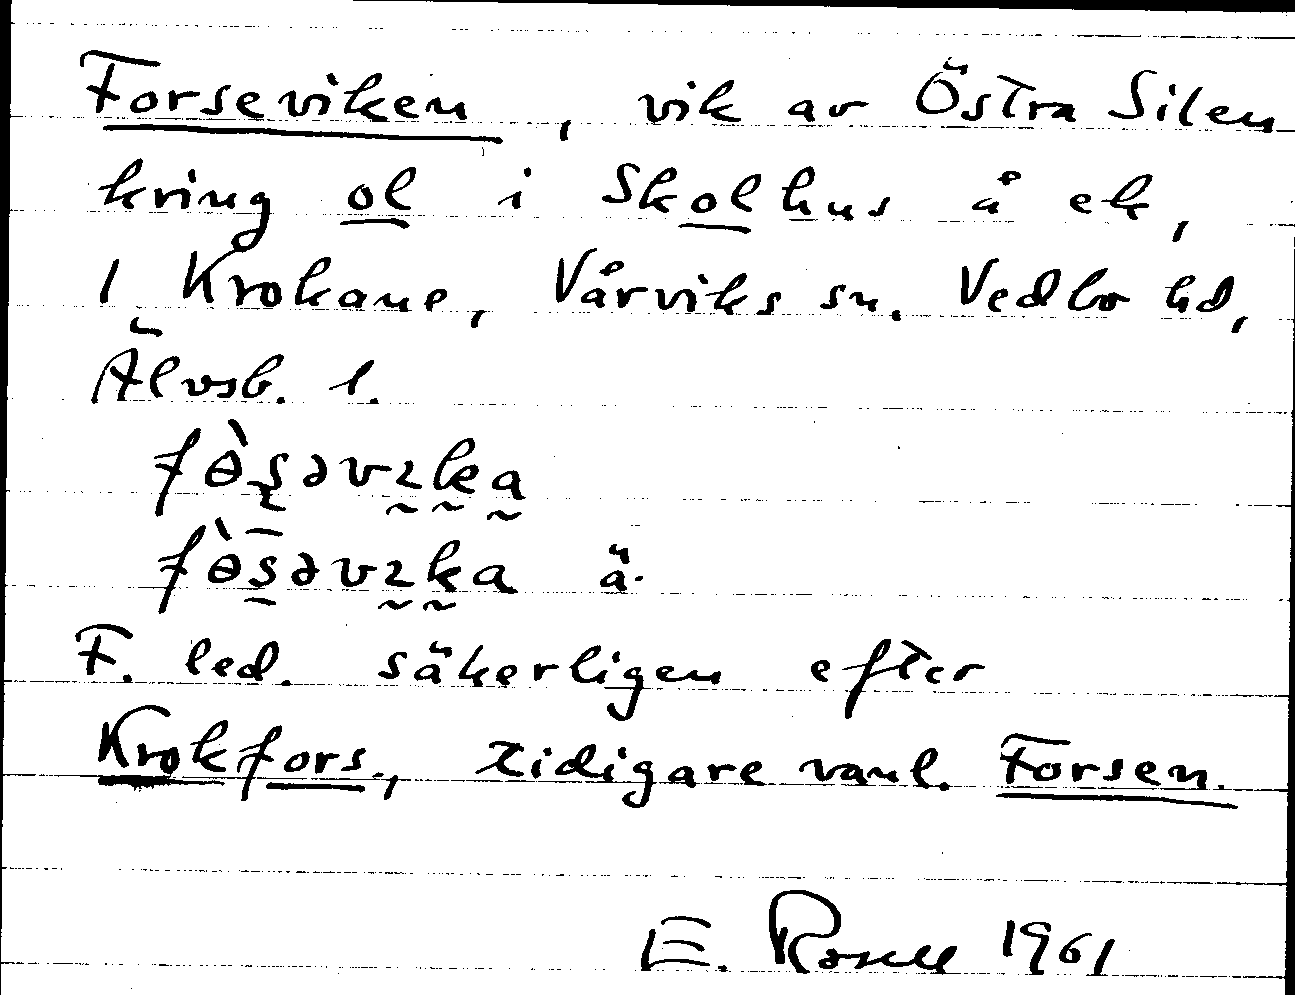 Forseviken, vik av Östra Silen
kring ol i Skolhus å ek,
1 Krokane, Vårviks sn. Vedbo hd,
Älvsb. l.
fɵ̀ʂəvɩka
fɵ̀s̠̄əvɩka ä.
F. led. säkerligen efter
Krokfors, tidigare vanl. Forsen.
E. Rosell 1961